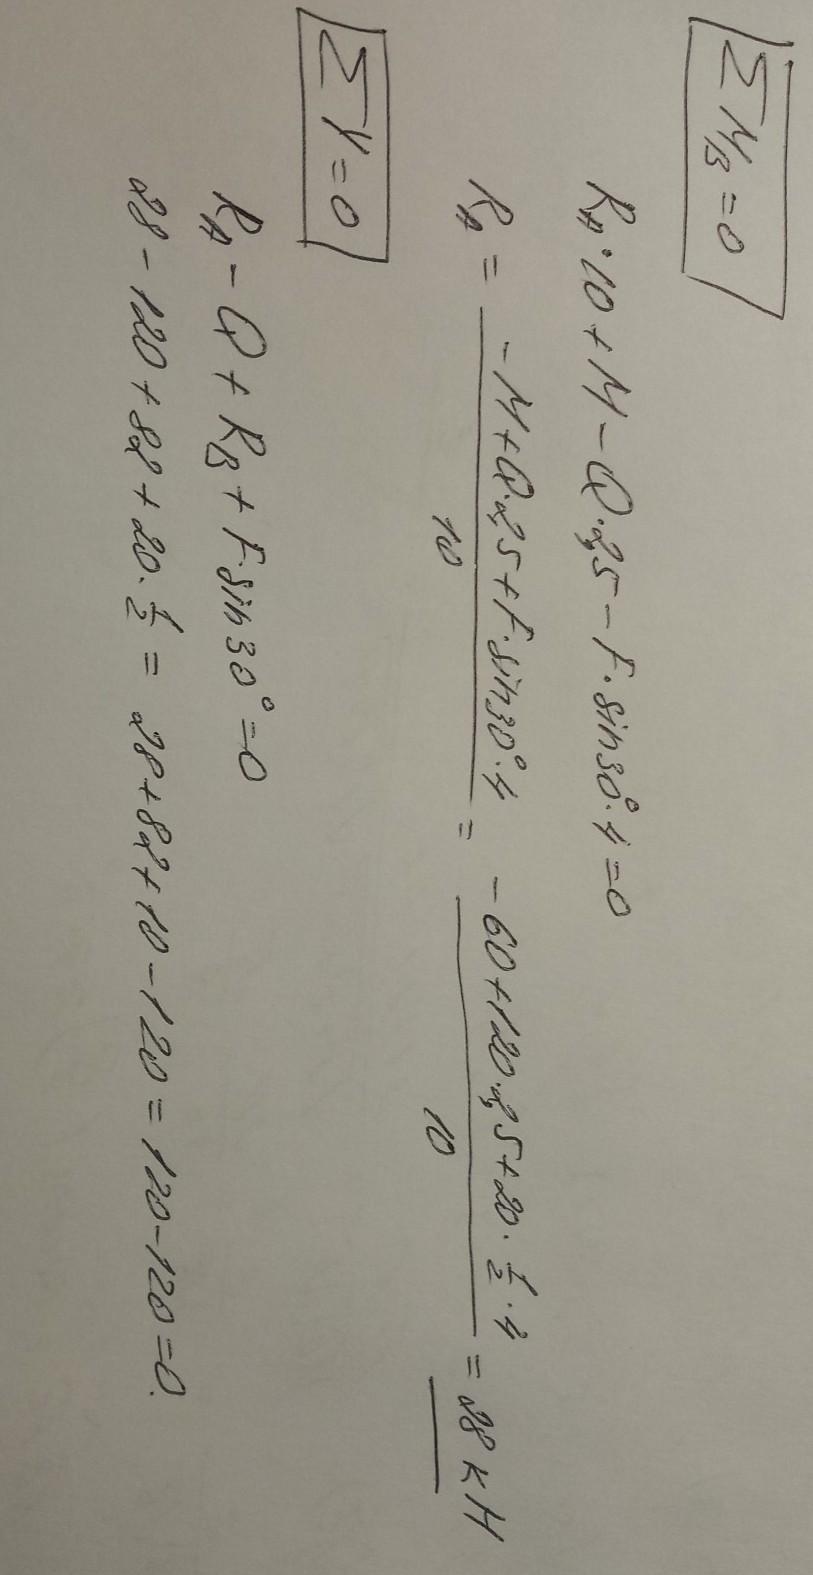 ΣM_B = 0
R_A · 10 + M - Q · 2,5 - F · sin30° · 4 = 0
R_A = (-M + Q · 2,5 + F · sin30° · 4) / 10 = (-60 + 120 · 2,5 + 20 · 1/2 · 4) / 10 = 28 кН
ΣY = 0
R_A - Q + R_B + F · sin30° = 0
28 - 120 + 82 + 20 · 1/2 = 28 + 82 + 10 - 120 = 120 - 120 = 0.